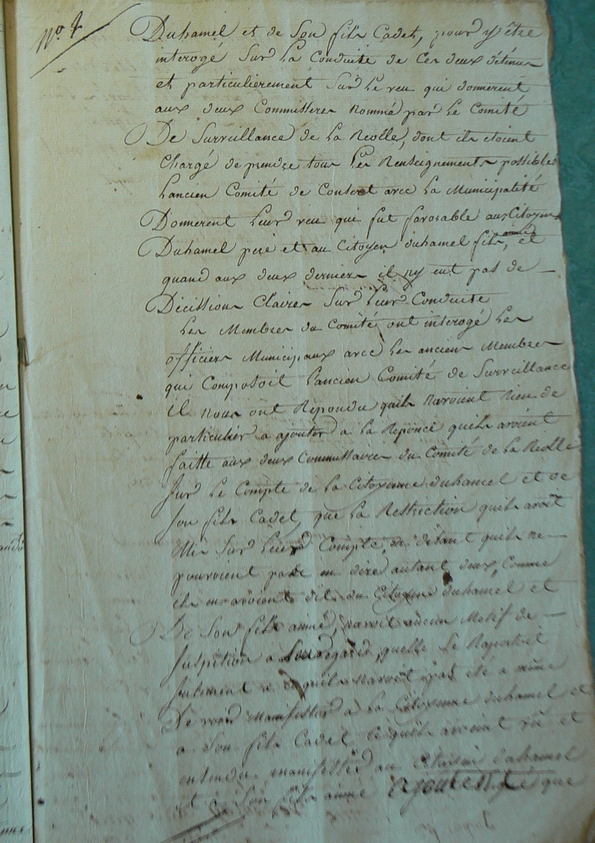 Duhamel et de Son fils Cadet, pour y être
interogé Sur La Conduite de Ces deux détenus
et particulierement Sur Le veu qui donnerent
aux deux Commissaires Nommé par Le Comité
De Surveillance de La Reolle, dont ils étoient
Chargé de prendre tous Les Renseignements possibles
Lancien Comité de Concert avec La Municipalité
Donnerent Leur veu que fut favorable aux Citoyens
Duhamel pere et au Citoyen duhamel fils, et
quand aux deux derniers il ny eut pas de
Décission Claires Sur Leur Conduite
Les Membres du Comité ont interogé Les
officiers Municipaux avec Les anciens Membres
qui Composoit Lancien Comité de Surveillance
il nous ont Repondu quils Navoient Rien de
particulier a ajouter a la Reponce quils avoient
faitte aux deux Commissaires du Comité de La Reolle
Sur Le Compte de La Citoyenne duhamel et de
Son fils Cadet, que La Restriction quils avoit
Mis Sur Leur Compte, quils ne
pouvoient pas en dire autant deux, Comme
ils en avoient dit du Citoyen duhamel et
De Son fils ainné, Motif de
Suspition a quelle Se Raportet
quils Navoit pas été a même
De voir Manifester a La Citoyenne duhamel et
a Son fils Cadet ce quils avoient vu et
entendu manifester au Citoyen duhamel
et a Son fils ainné que